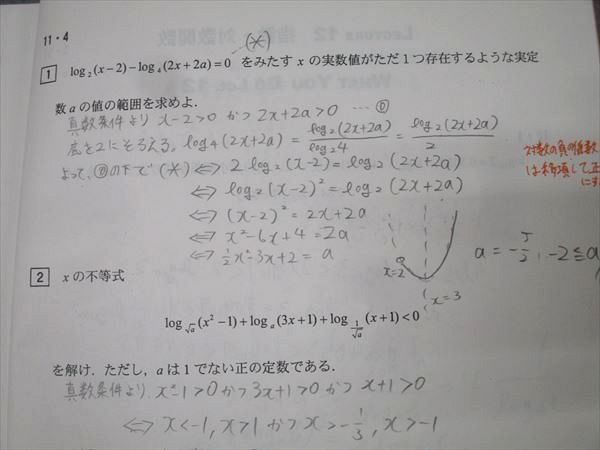 11・4
(*)
1 log₂(x−2)−log₄(2x+2a)=0 をみたす x の実数値がただ1つ存在するような実定
数 a の値の範囲を求めよ.
真数条件より x−2>0 かつ 2x+2a>0 … ①
底を2にそろえる. log₄(2x+2a) = log₂(2x+2a)/log₂4 = log₂(2x+2a)/2
よって、①の下で (*) ⇔ 2log₂(x−2)=log₂(2x+2a)
⇔ log₂(x−2)²=log₂(2x+2a)
⇔ (x−2)²=2x+2a
⇔ x²−6x+4=2a
⇔ ½x²−3x+2=a
x=2
x=3
a=−5/2, −2≦a
対数の負の係数
は移項して正
にす
2 x の不等式
log_{√a}(x²−1)+log_a(3x+1)+log_{1/√a}(x+1)<0
を解け. ただし, a は1でない正の定数である.
真数条件より, x²−1>0 かつ 3x+1>0 かつ x+1>0
⇔ x<−1, x>1 かつ x>−1/3, x>−1